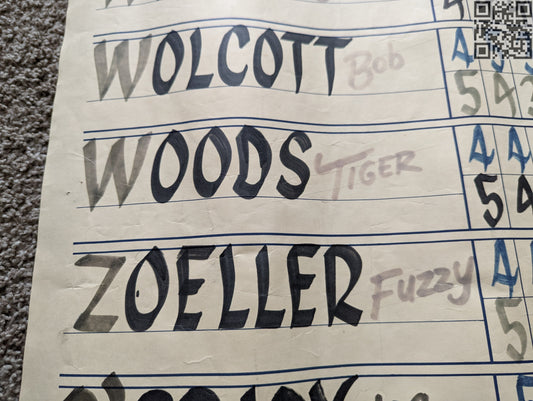 WOLCOTT Bob 4
5 4 3
WOODS TIGER 4 4
5 4
ZOELLER Fuzzy 4 4
5